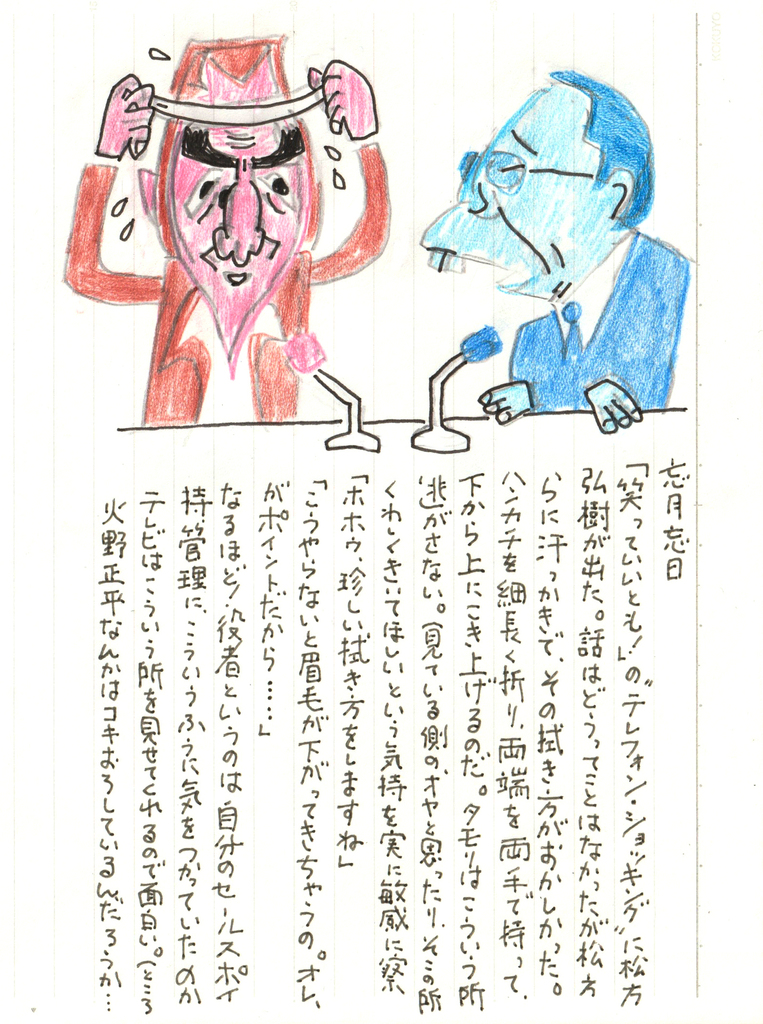 忘月忘日
「笑っていいとも!」の〝テレフォン・ショッキング〟に松方
弘樹が出た。話はどうってことはなかったが松方
らに汗っかきで、その拭き方がおかしかった。
ハンカチを細長く折り、両端を両手で持って、
下から上にこき上げるのだ。タモリはこういう所
逃がさない。(見ている側の、オヤと思ったり、そこの所
くわしくきいてほしいという気持を実に敏感に察
「ホホウ、珍しい拭き方をしますね」
「こうやらないと眉毛が下がってきちゃうの。オレ、
がポイントだから……」
なるほど!役者というのは自分のセールスポイ
持管理に、こういうふうに気をつかっていたのか
テレビはこういう所を見せてくれるので面白い。(ところ
火野正平なんかはコキおろしているんだろうか…
KOKUYO